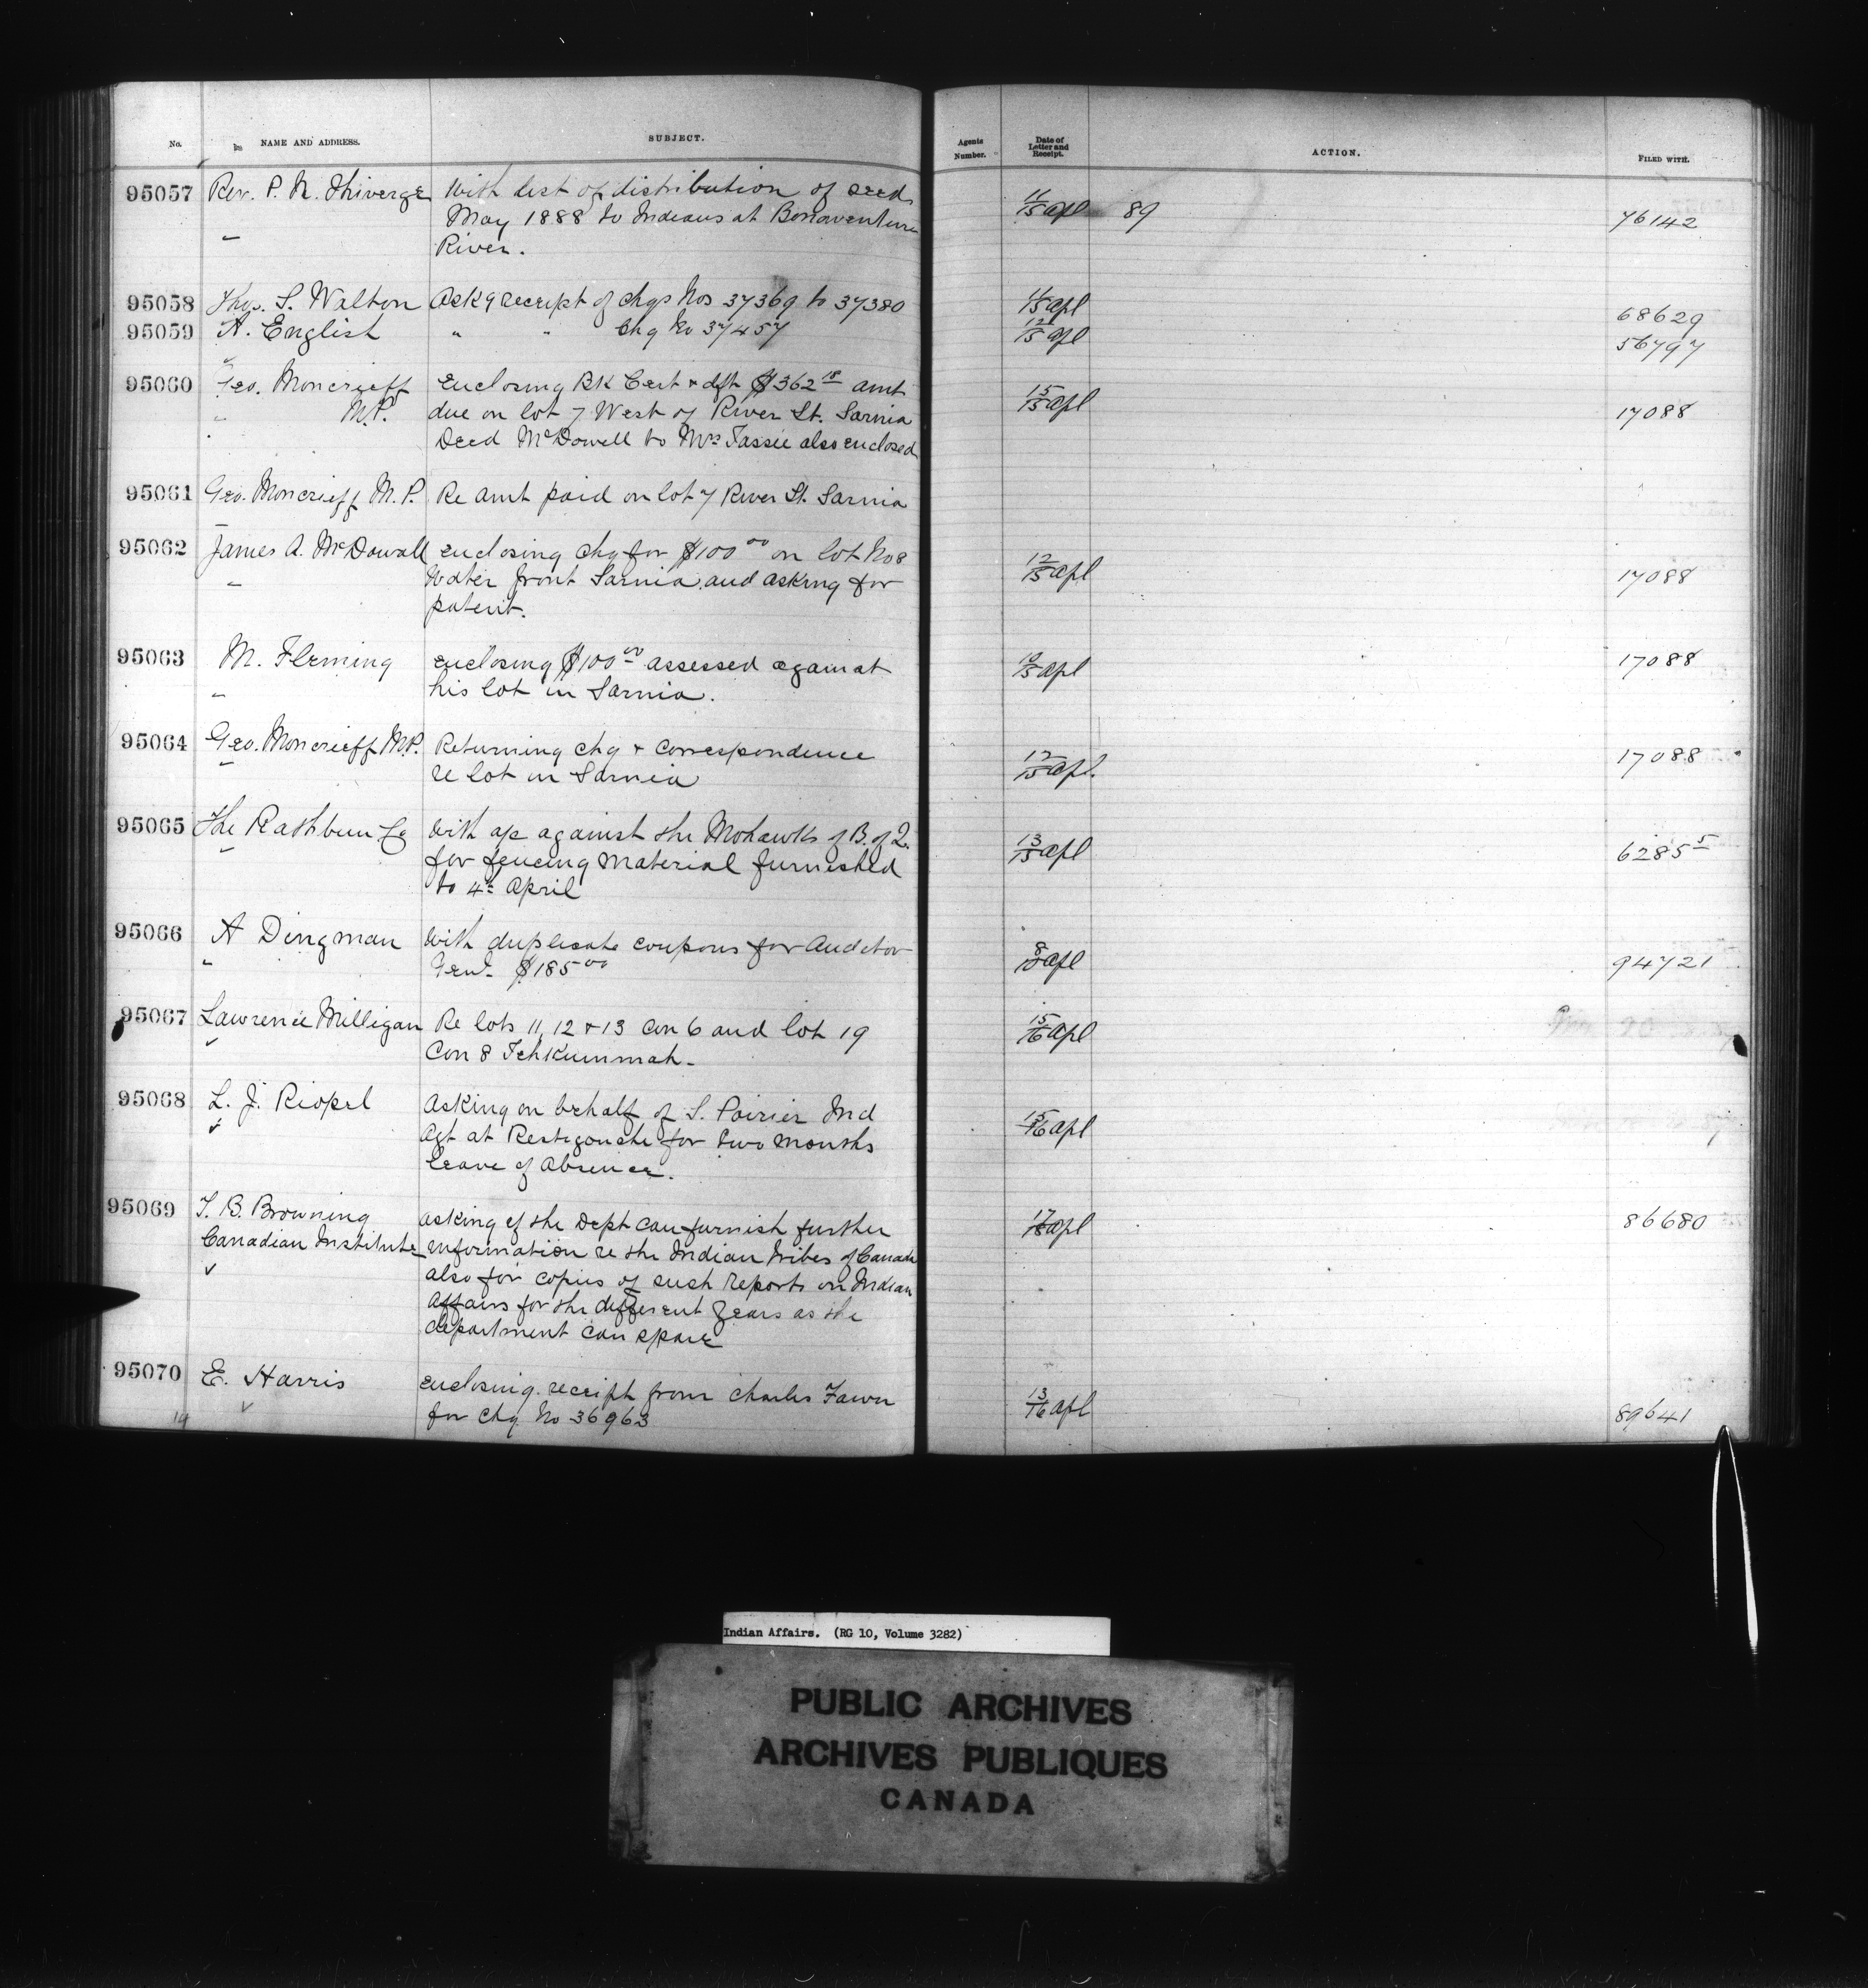 No. NAME AND ADDRESS. SUBJECT. Agents Number. Date of Letter and Receipt. ACTION. FILED WITH.
95057 Rev. P. N. Thiverge With list of distribution of seed 11/15 apl 89 76142
May 1888 to Indians at Bonaventure
River.
95058 Thos. S. Walton Ackg receipt of chqs Nos 37369 to 37380 11/15 apl 68629
95059 A. English " " Chq No 37457 12/15 apl 56797
95060 Geo. Moncrieff enclosing Bk Cert & dft $362 18 amt 15/15 apl 17088
M.P. due on lot 7 West of River St. Sarnia
Deed McDowell to Mrs Tassie also enclosed
95061 Geo. Moncrieff M.P. Re amt paid on lot 7 River St. Sarnia
95062 James A. McDowall enclosing chq for $100 00 on lot No 8 12/15 apl 17088
Water front Sarnia and asking for
patent.
95063 M. Fleming enclosing $100 00 assessed against /15 apl 17088
his lot in Sarnia.
95064 Geo. Moncrieff M.P. Returning chq & Correspondence 12/15 apl. 17088
re lot in Sarnia
95065 The Rathbun Co With a/c against the Mohawks of B. of Q. 13/15 apl 62855
for fencing material furnished
to 4th April
95066 A Dingman With duplicate coupons for Auditor 8/ apl 94721
Genl. $185 00
95067 Lawrence Milligan Re lots 11, 12 & 13 Con 6 and lot 19 15/16 apl
Con 8 Tehkummah.
95068 L. J. Riopel Asking on behalf of S. Poirier Ind 15/16 apl
Agt at Restigouche for two months
leave of absence.
95069 T. B. Browning asking if the Dept can furnish further apl 86680
Canadian Institute information re the Indian tribes of Canada
also for copies of such reports on Indian
Affairs for the different years as the
department can spare
95070 E. Harris enclosing receipt from Charles Fawn 13/16 apl 89641
for chq No 36963
14
Indian Affairs. (RG 10, Volume 3282)
PUBLIC ARCHIVES
ARCHIVES PUBLIQUES
CANADA